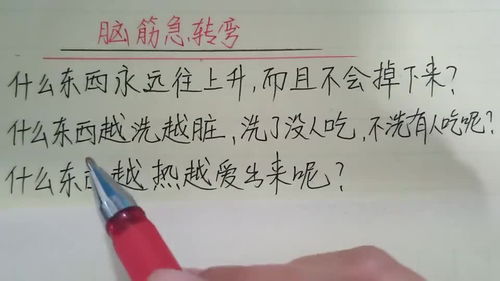 脑筋急转弯
什么东西永远往上升,而且不会掉下来?
什么东西越洗越脏,洗了没人吃,不洗有人吃呢?
什么东西越热越爱出来呢?